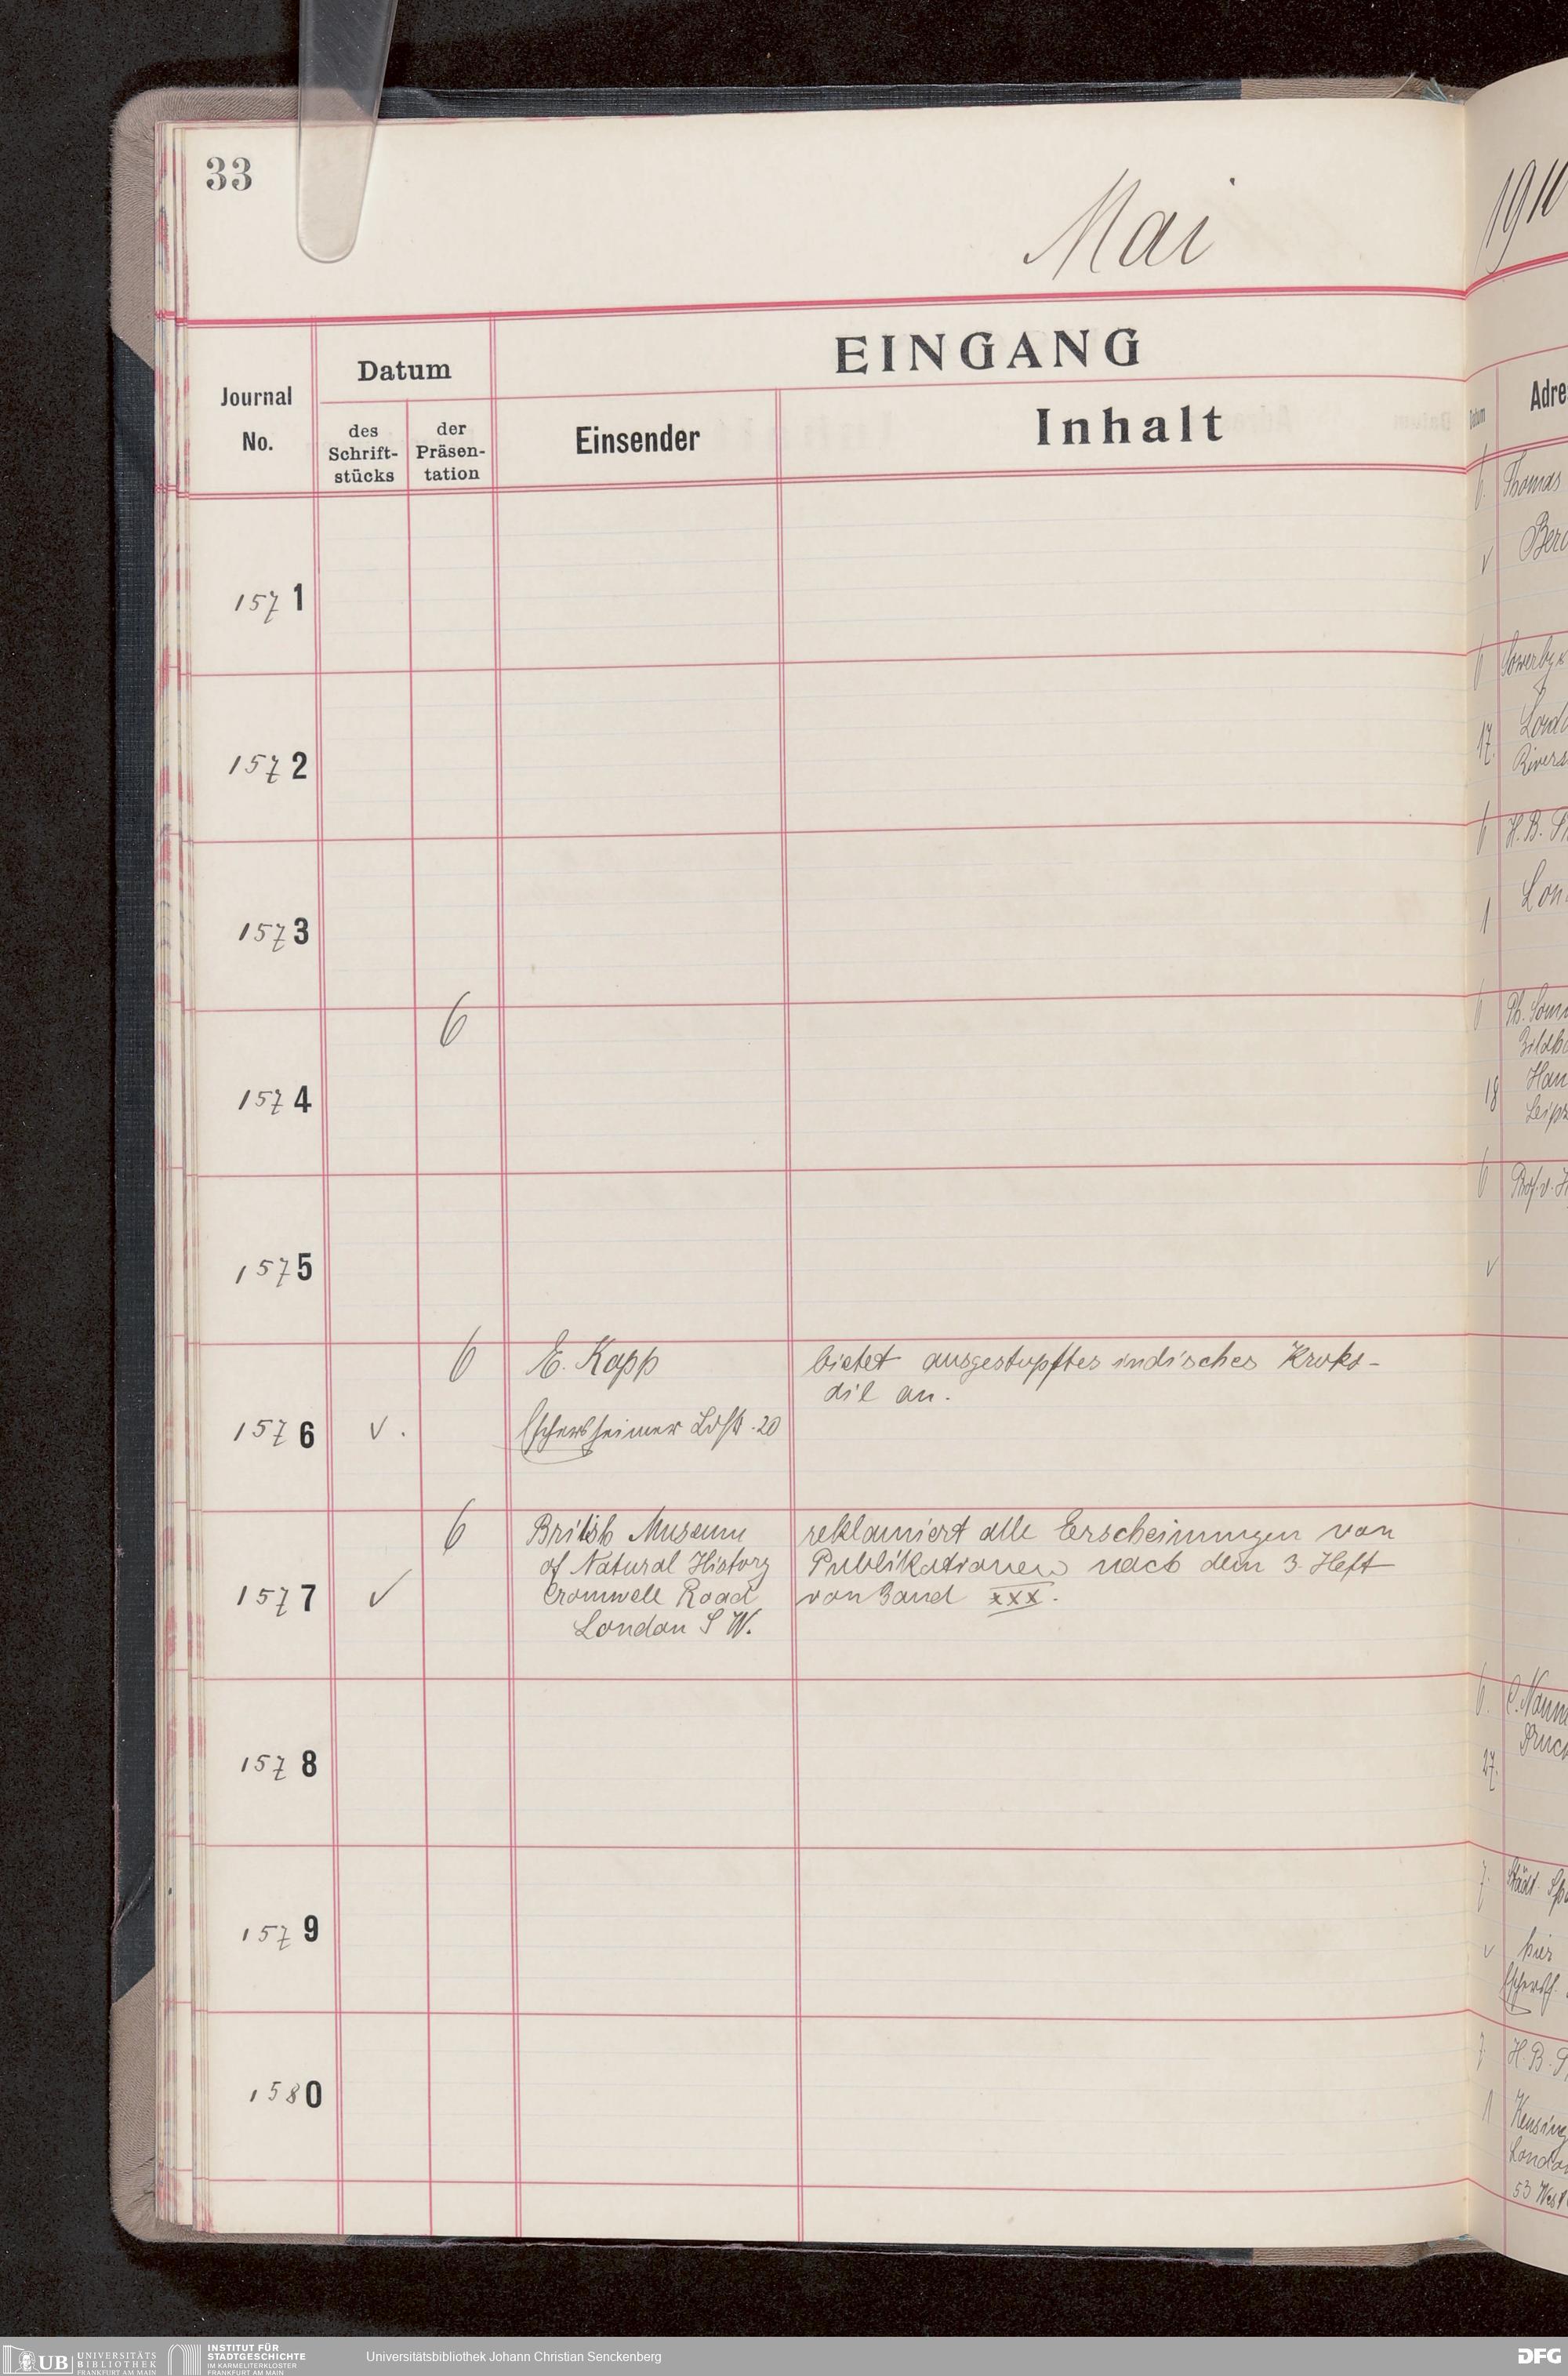 33
Mai
1910
EINGANG
Journal
No.
Datum
des
Schrift-
stücks
der
Präsen-
tation
Einsender
Inhalt
Datum
Adre
6. Thomas
v
1571
6
1572
17.
6 H. B.
1573
Lon
1
6
1574
Ph.
18
Leipz
6 Prof. v.
1575
v
6 E. Kapp bietet ausgestopftes indisches Kroko-
dil an.
1576 v. Eschersheimer Ldstr. 20
6 British Museum reklamiert alle Erscheinungen von
of Natural History Publikationen nach dem 3. Heft
1577 v Cromwell Road von Band XXX.
London S W.
6.
1578
27.
7. Städt
1579
v hier
1580
7 H. B.
1 Kensing
London
53 West
UB UNIVERSITÄTS
BIBLIOTHEK
FRANKFURT AM MAIN
INSTITUT FÜR
STADTGESCHICHTE
IM KARMELITERKLOSTER
FRANKFURT AM MAIN
Universitätsbibliothek Johann Christian Senckenberg
DFG